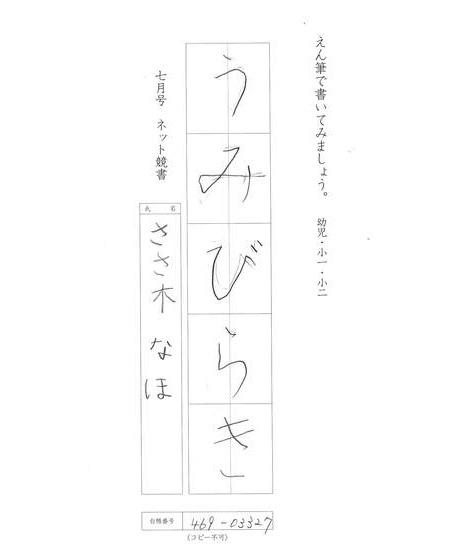 えん筆で書いてみましょう。 幼児・小一・小二
うみびらき
七月号 ネット競書
氏名
ささ木 なほ
台帳番号 469-03327
(コピー不可)